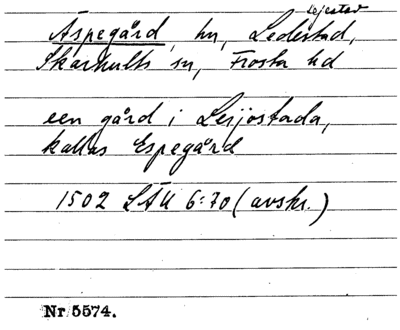 Lejestad
Äspegård, hn, Ledestad,
Skarhults sn, Frosta hd
een gård i Leijostada,
kallas Espegård
1502 LÄU 6:70 (avskr.)
Nr 5574.